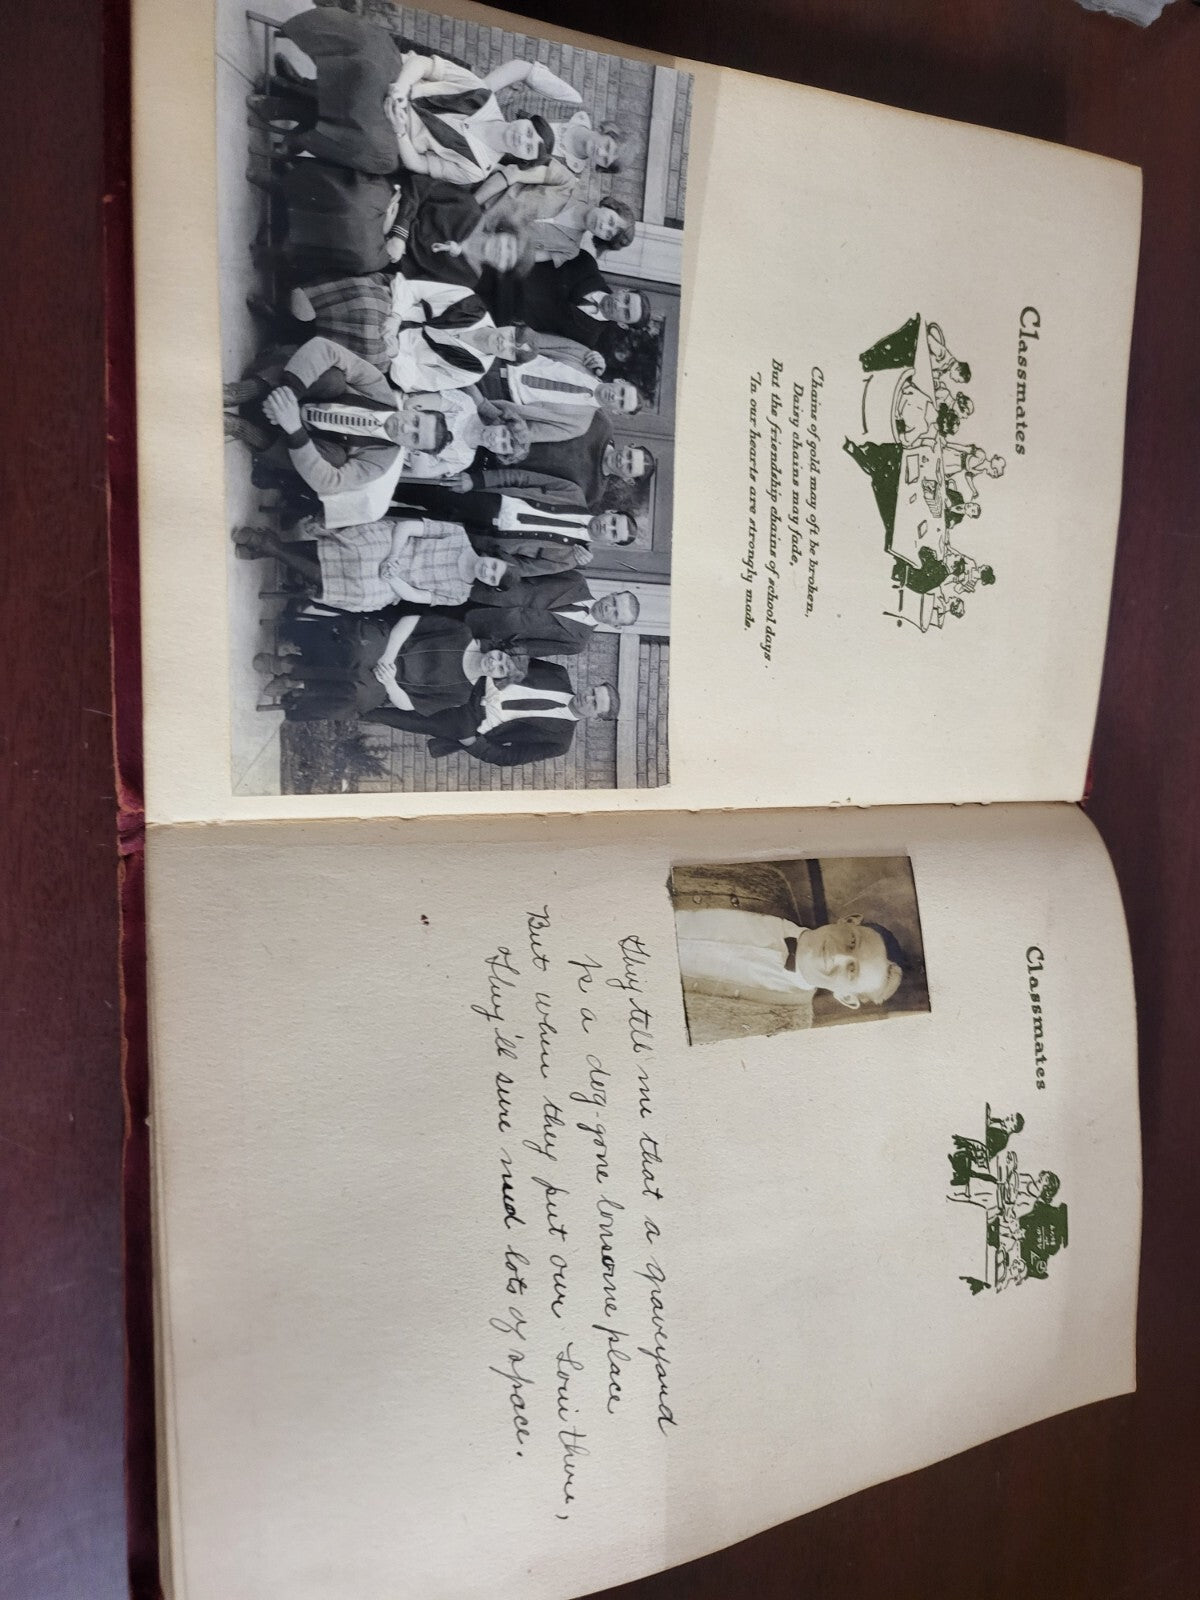 Classmates
Chains of gold may oft be broken,
Daisy chains may fade,
But the friendship chains of school days
In our hearts are strongly made.
Classmates
They tell me that a graveyard
Is a dog-gone lonsome place
But when they put our Loui there,
They'll sure need lots of space.